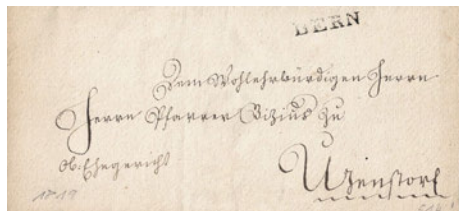 BERN
Dem Wohlehrwürdigen Herrn
Herrn Pfarrer Bizius zu
Ob. Ehegericht
Utzenstorf
1819